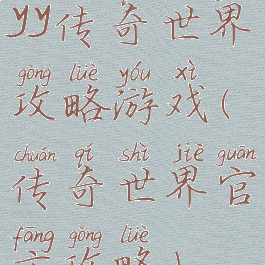 yy传奇世界
gōng lüè yóu xì
攻略游戏(
chuán qí shì jiè guān
传奇世界官
fāng gōng lüè
方攻略)